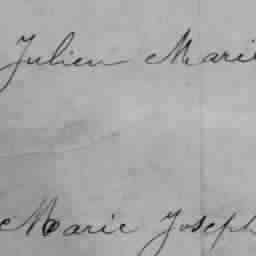 Julien Marie
Marie Joseph